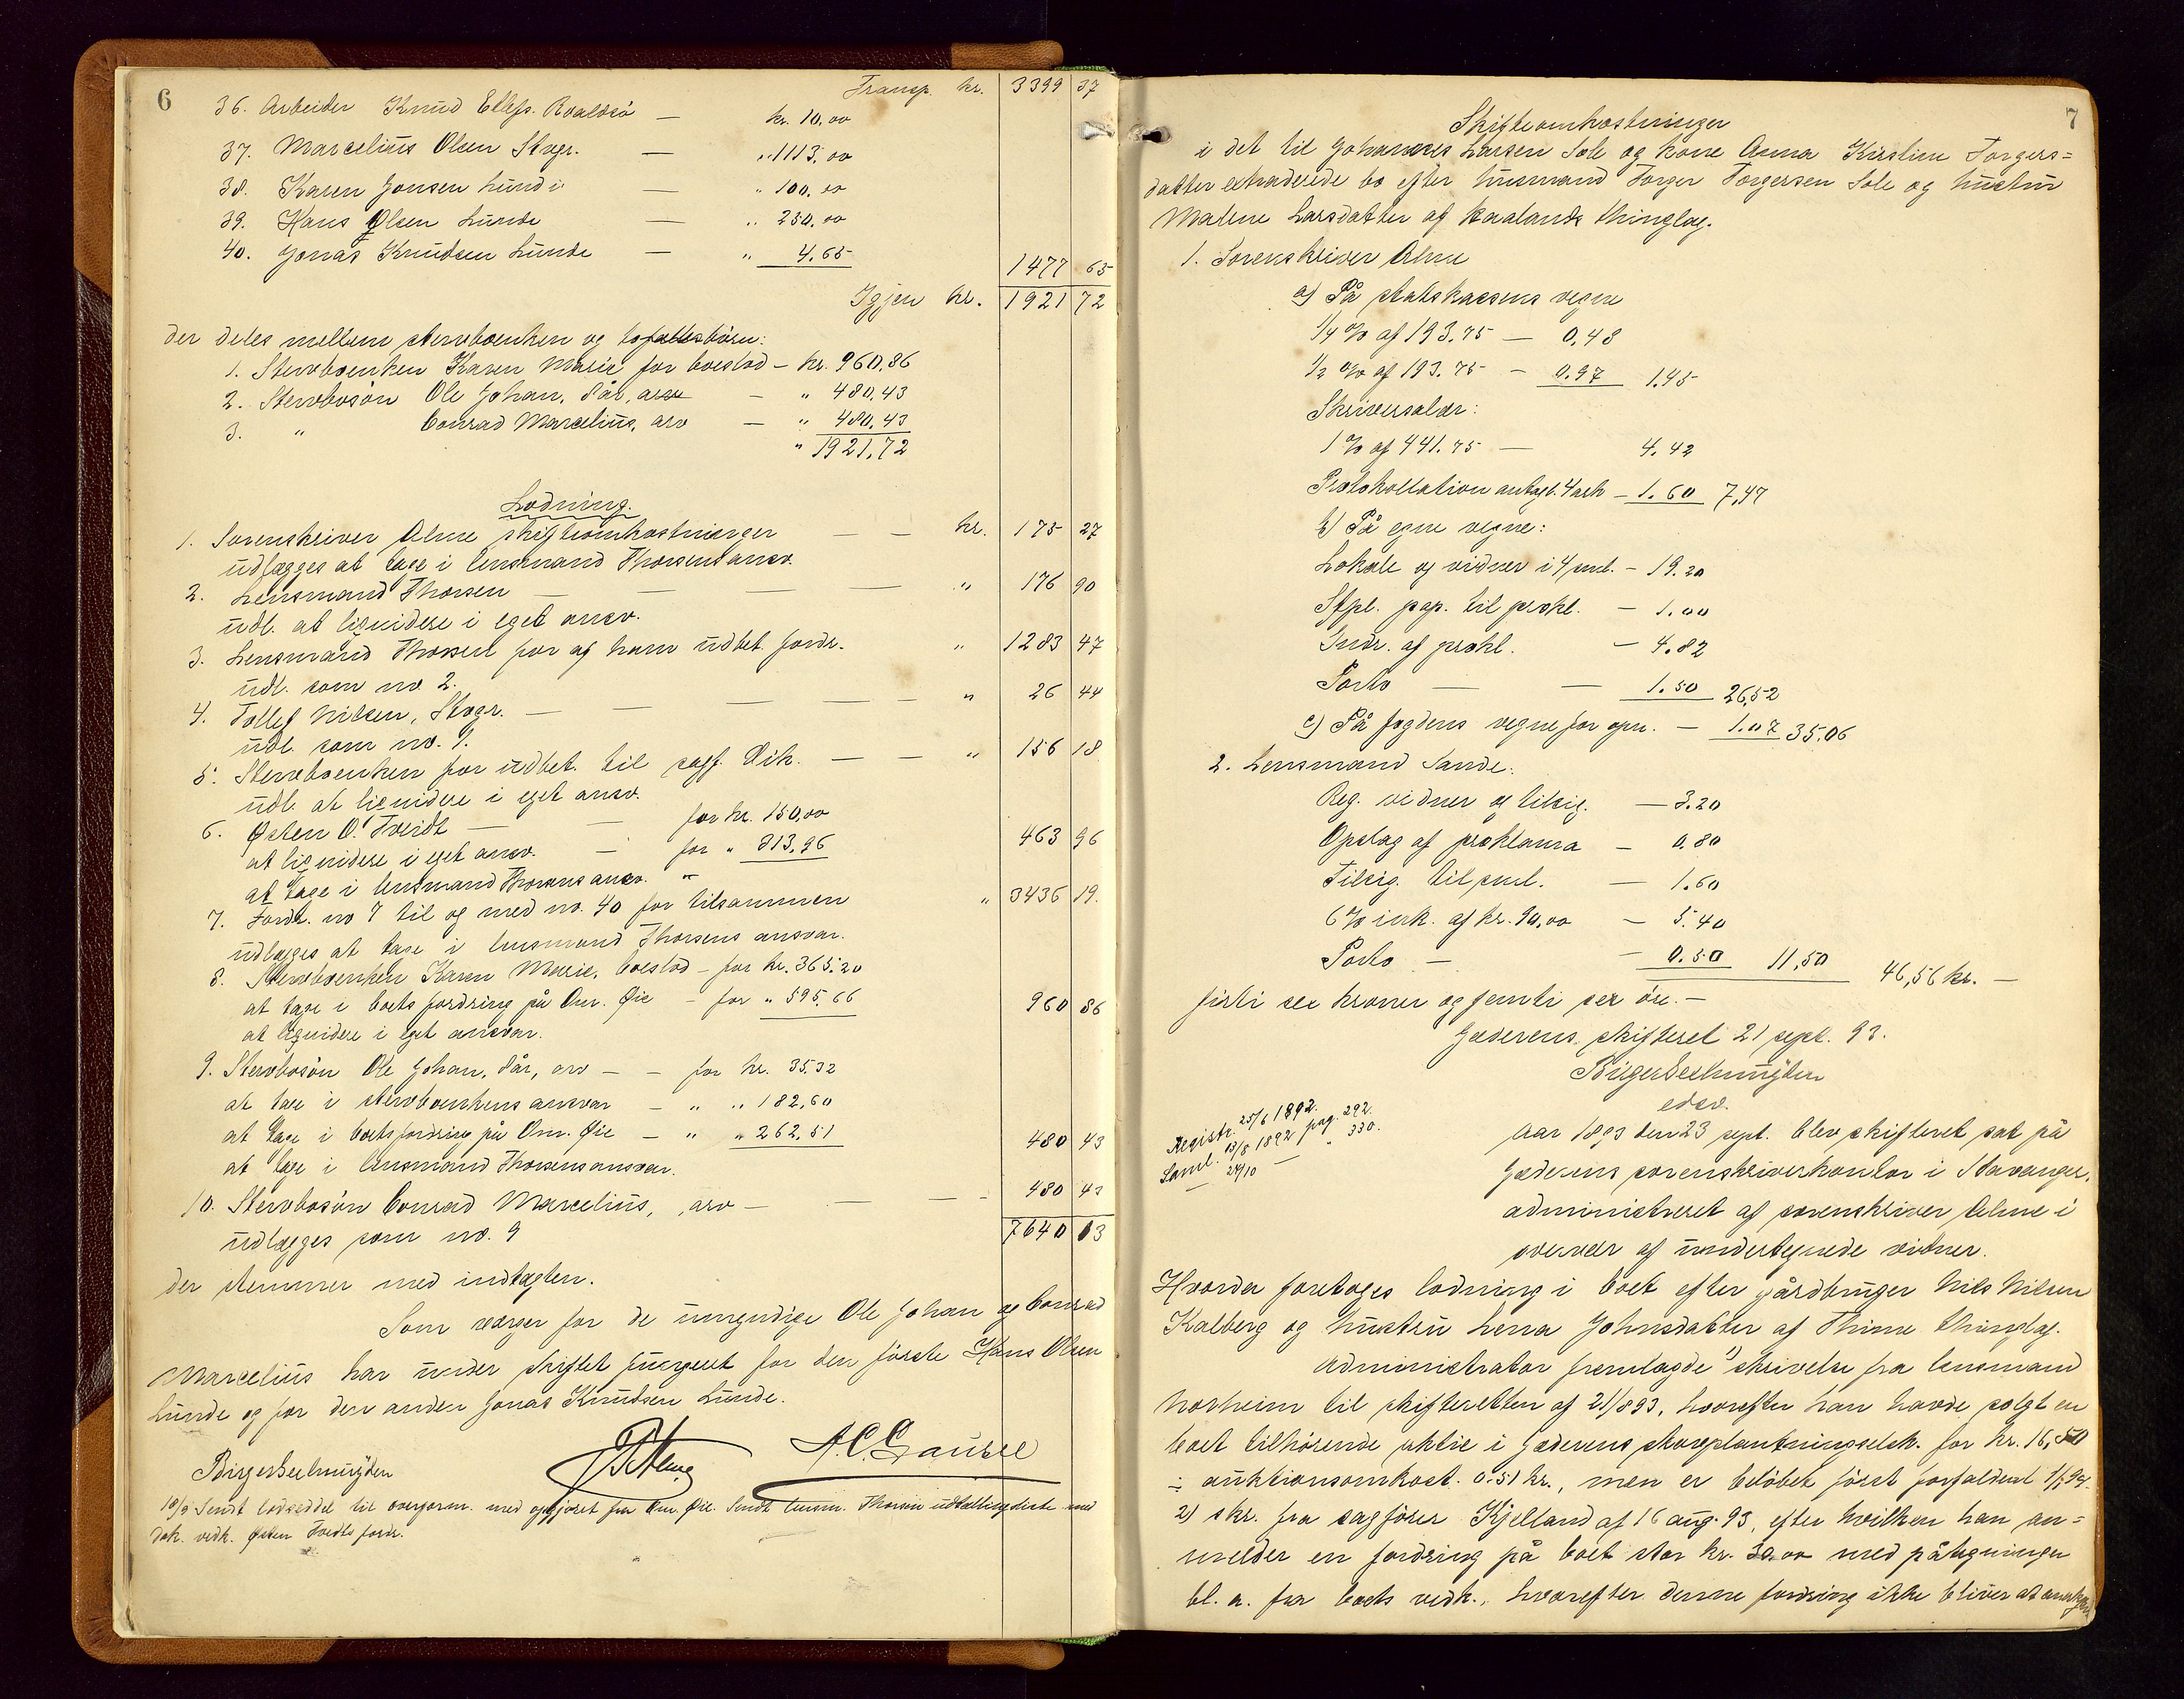 6
Transp. kr. 3399 37
36. Arbeider Knud Ellefs. Roaldsö — kr. 10,00
37. Marcelius Olsen Stvgr. — " 1113,00
38. Karen Jonsen Lunde — " 100,00
39. Hans Olsen Lunde — " 250,00
40. Jonas Knudsen Lunde — " 4.65 1477 65
Igjen kr. 1921 72
der deles mellem stervboenken og to fællesbörn:
1. Stervboenken Karen Marie for boeslod – kr. 960,86
2. Stervbosön Ole Johan, 8 år, arv — " 480,43
3. " Conrad Marcelius, arv — " 480,43
" 1921,72
Lodning.
1. Sorenskriver Alme skifteomkostninger — — kr. 175 27
udlægges at tage i lensmand Thorsens ansv.
2. Lensmand Thorsen — — — — " 176 90
udl. at liquidere i eget ansv.
3. Lensmand Thorsen for af ham udbet. fordr. " 1283 47
udl. som no 2.
4. Tollef Nilsen, Stvgr. — — — — — " 26 44
udl. som no. 1.
5. Stervboenken for udbet. til sagf. Eik. — — " 156 18
udl. at liquidere i eget ansv.
6. Østen O. Tveidt — — for kr. 150,00
at liquidere i eget ansv. — for " 313,96 463 96
at tage i lensmand Thorsens ansv. "
7. Fordr. no 7 til og med no. 40 for tilsammen " 3436 19.
udlægges at tage i lensmand Thorsens ansvar.
8. Stervboenken Karen Marie, boeslod – for kr. 365.20
at tage i boets fordring på Om. Øie – for " 595,66 960 86
at liquidere i eget ansvar.
9. Stervbosön Ole Johan, 8 år, arv — – for kr. 35.32
at tage i stervboenkens ansvar — " " 182,60
at tage i boets fordring på Om. Øie — " " 262,51 480 43
at tage i lensmand Thorsens ansvar.
10. Stervbosön Conrad Marcelius, arv — — — – 480 43
udlægges som no. 9 7640 03
der stemmer med indtægten.
Som værger for de umyndige Ole Johan og Conrad
Marcelius har under skiftet fungeret for den förste Hans Olsen
Lunde og for den anden Jonas Knudsen Lunde.
A. C. Gausel
18/9 Sendt lodseddel til overform. med opgjöret fra Om. Øie. Sendt lensm. Thorsen udtællingsliste med
dok. vedk. Østen Tvedts fordr.
7
Skifteomkostninger
i det til Johannes Larsen Sole og kone Anna Kirstine Torgers=
datter extraderede bo efter husmand Torger Torgersen Sole og hustru
Malene Larsdatter af Haalands thinglag.
1. Sorenskriver Alme
a) På statskassens vegne
1/4 % af 193.75 — 0,48
1/2 % af 193.75 – 0.97 1.45
Skriversalær:
1 % af 441.75 — 4.42
Protokollation antagl. 4 ark – 1.60 7,47
b) På egne vegne:
Lokale og vidner i 4 sml. – 19.20
Stpl. pap. til prokl. – 1.00
Indr. af prokl. – 4.82
Porto — — 1.50 26,52
c) På fogdens vegne for opn. — 1.07 35.06
2. Lensmand Sande:
Reg. vidner og tilsig. — 3.20
Opslag af proklama — 0.80
Tilsig. til sml. — 1.60
6 % ink. af kr. 90,00 — 5.40
Porto — — 0.50 11,50 46,56 kr. —
firti sex kroner og femti sex öre. —
Jæderens skifteret 21 sept. 93.
edsv.
Registr. 25/6 1892.
Saml. 13/8 1892 pag. 292.
— 24/10 — " 330.
Aar 1893 den 23 sept. blev skifteret sat på
Jæderens sorenskriverkontor i Stavanger,
administreret af sorenskriver Alme i
overvær af undertegnede vidner.
Hvorda foretoges lodning i boet efter gårdbruger Nils Nilsen
Kalberg og hustru Lena Johnsdatter af Thime thinglag.
Administrator fremlagde 1) skrivelse fra lensmand
Norheim til skifteretten af 21/8 93, hvorefter han havde solgt en
boet tilhörende aktie i Jæderens skovplantningselsk. for kr. 16,50
÷ auktionsomkost. 0.51 kr., men er belöbet först forfaldent 1/1 94.
2) skr. fra sagförer Kjelland af 16 aug. 93, efter hvilken han an=
melder en fordring på boet stor kr. 30.00 med påtegninger
bl. a. fra boets vedk., hvorefter denne fordring ikke bliver at